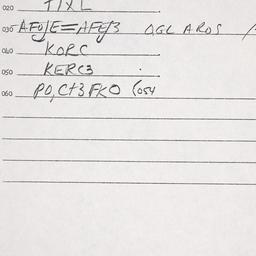 020 TIXL
030 AFOJE=AFE/3 OGL AROS
040 KORC
050 KERC3
060 PO,C+3FKO (054